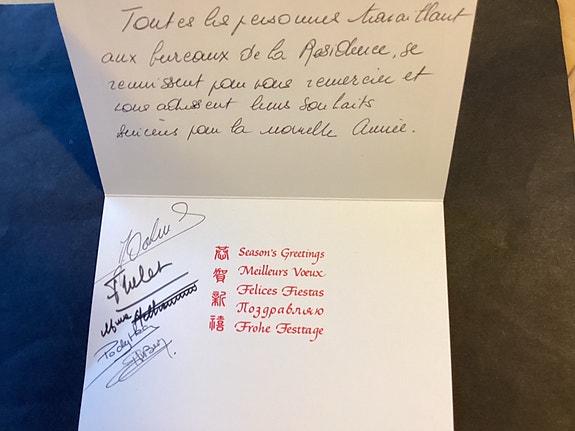 Toutes les personnes travaillant
aux bureaux de la Residence, se
reunissent pour vous remercier et
vous adressent leurs souhaits
sincères pour la nouvelle Année.
恭賀新禧
Season's Greetings
Meilleurs Vœux
Felices Fiestas
Поздравляю
Frohe Festtage